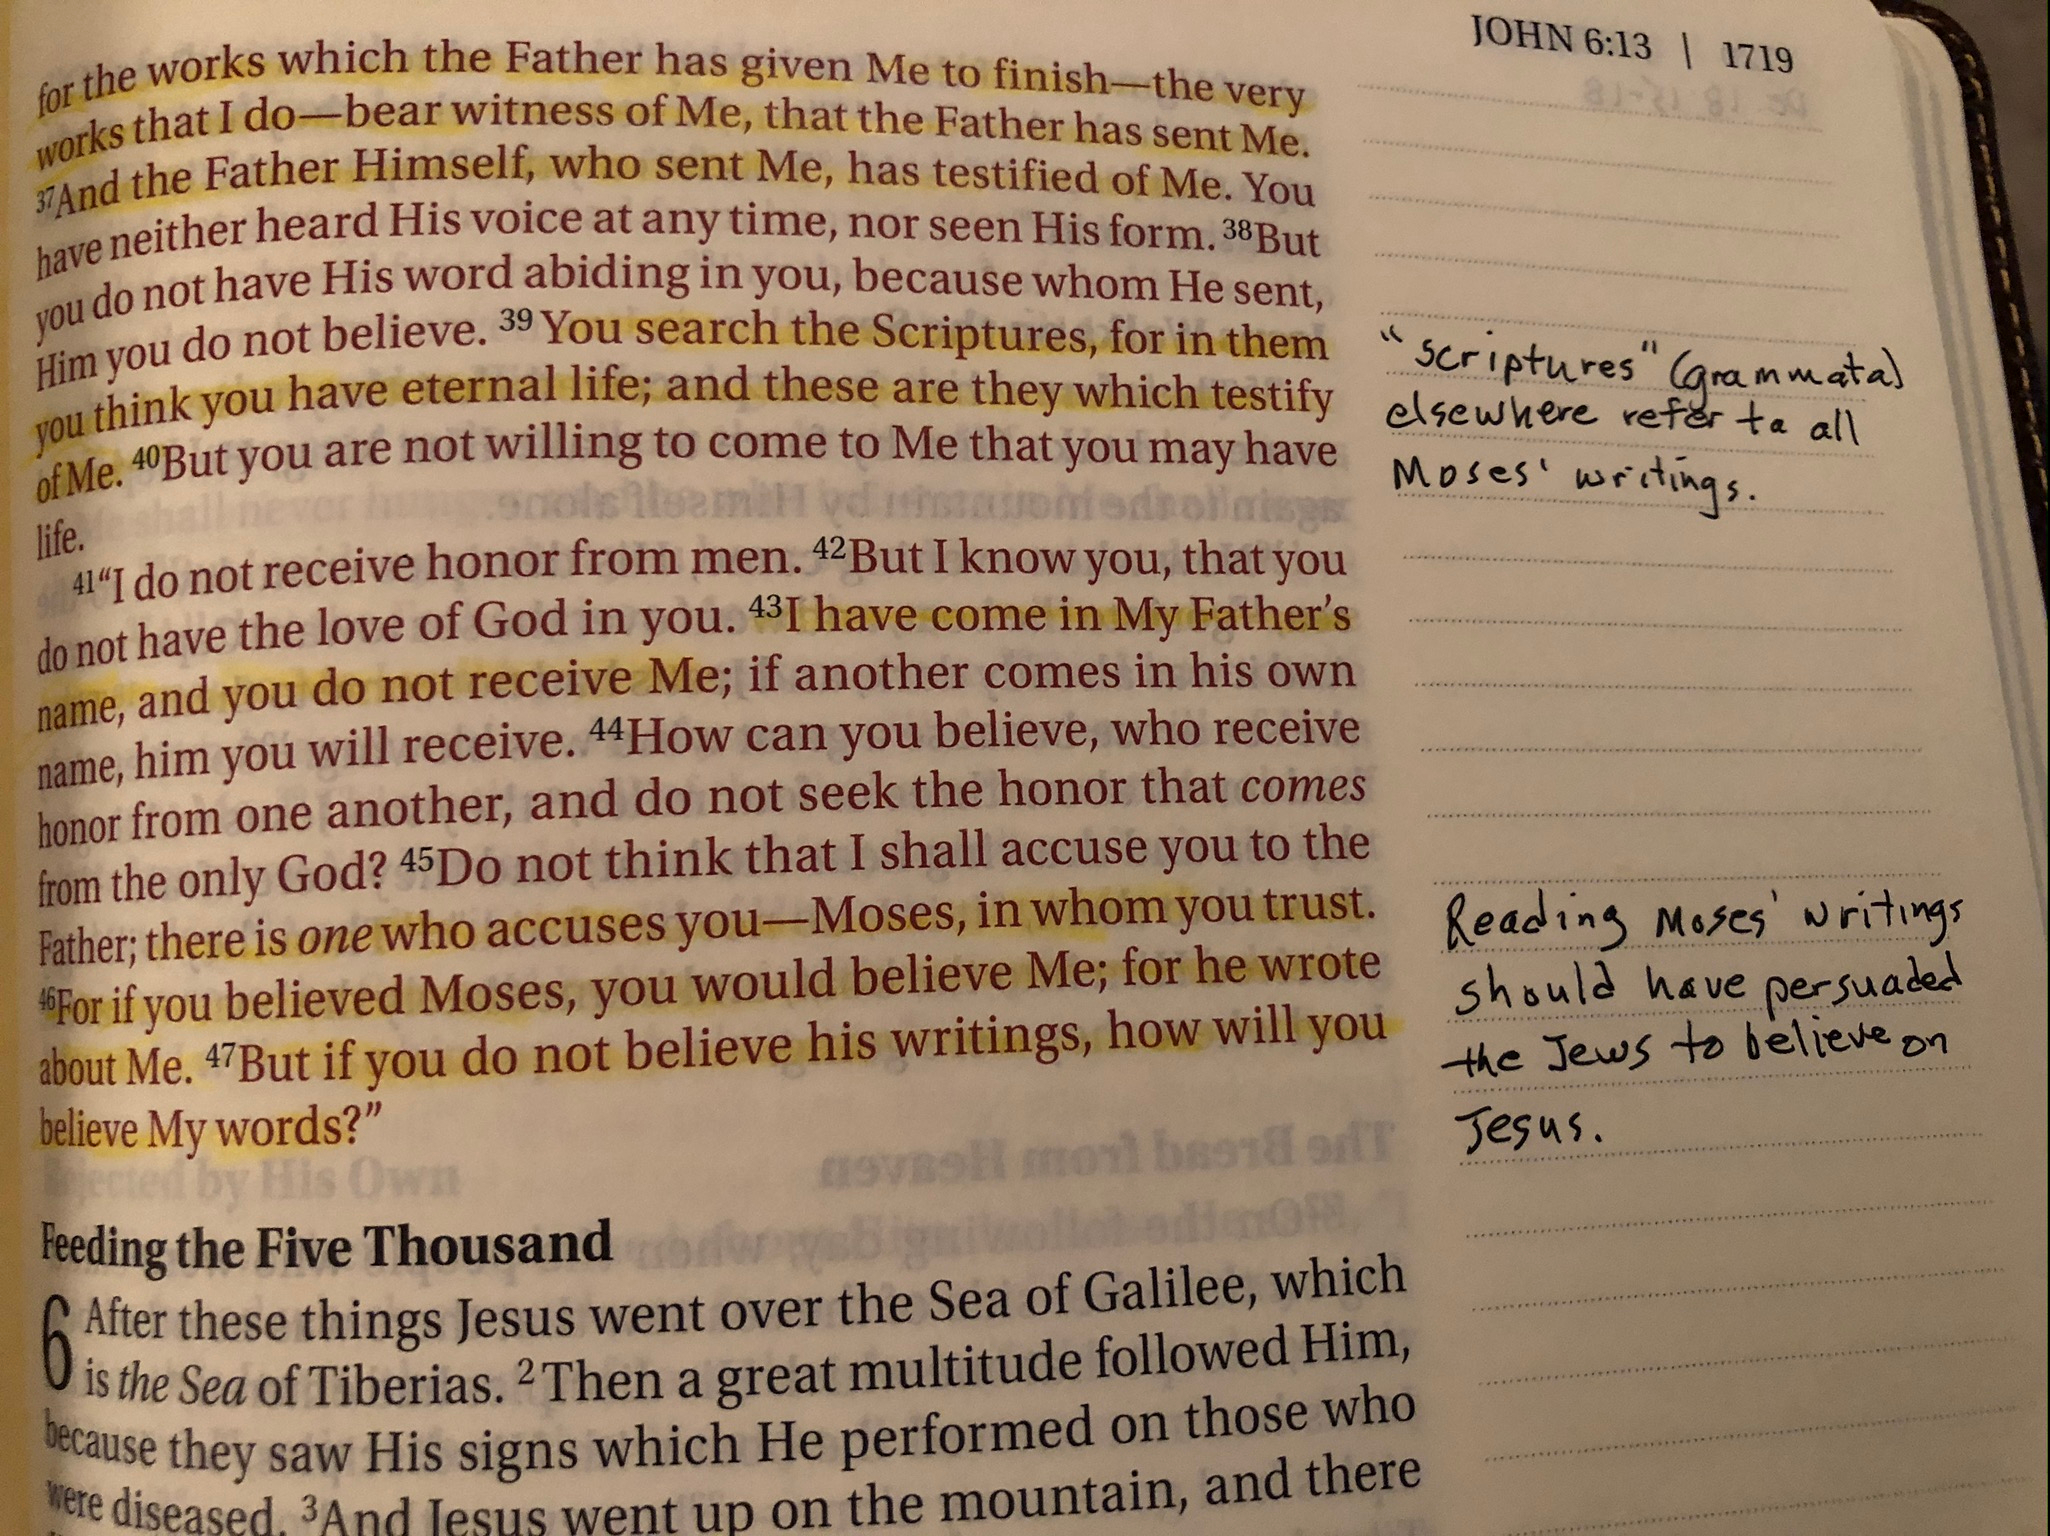 JOHN 6:13 | 1719
for the works which the Father has given Me to finish—the very
works that I do—bear witness of Me, that the Father has sent Me.
37And the Father Himself, who sent Me, has testified of Me. You
have neither heard His voice at any time, nor seen His form. 38But
you do not have His word abiding in you, because whom He sent,
Him you do not believe. 39You search the Scriptures, for in them
you think you have eternal life; and these are they which testify
of Me. 40But you are not willing to come to Me that you may have
life.
41“I do not receive honor from men. 42But I know you, that you
do not have the love of God in you. 43I have come in My Father’s
name, and you do not receive Me; if another comes in his own
name, him you will receive. 44How can you believe, who receive
honor from one another, and do not seek the honor that comes
from the only God? 45Do not think that I shall accuse you to the
Father; there is one who accuses you—Moses, in whom you trust.
46For if you believed Moses, you would believe Me; for he wrote
about Me. 47But if you do not believe his writings, how will you
believe My words?”
Feeding the Five Thousand
6 After these things Jesus went over the Sea of Galilee, which
is the Sea of Tiberias. 2Then a great multitude followed Him,
because they saw His signs which He performed on those who
were diseased. 3And Jesus went up on the mountain, and there
"scriptures" (grammata)
elsewhere refer to all
Moses' writings.
Reading Moses' writings
should have persuaded
the Jews to believe on
Jesus.